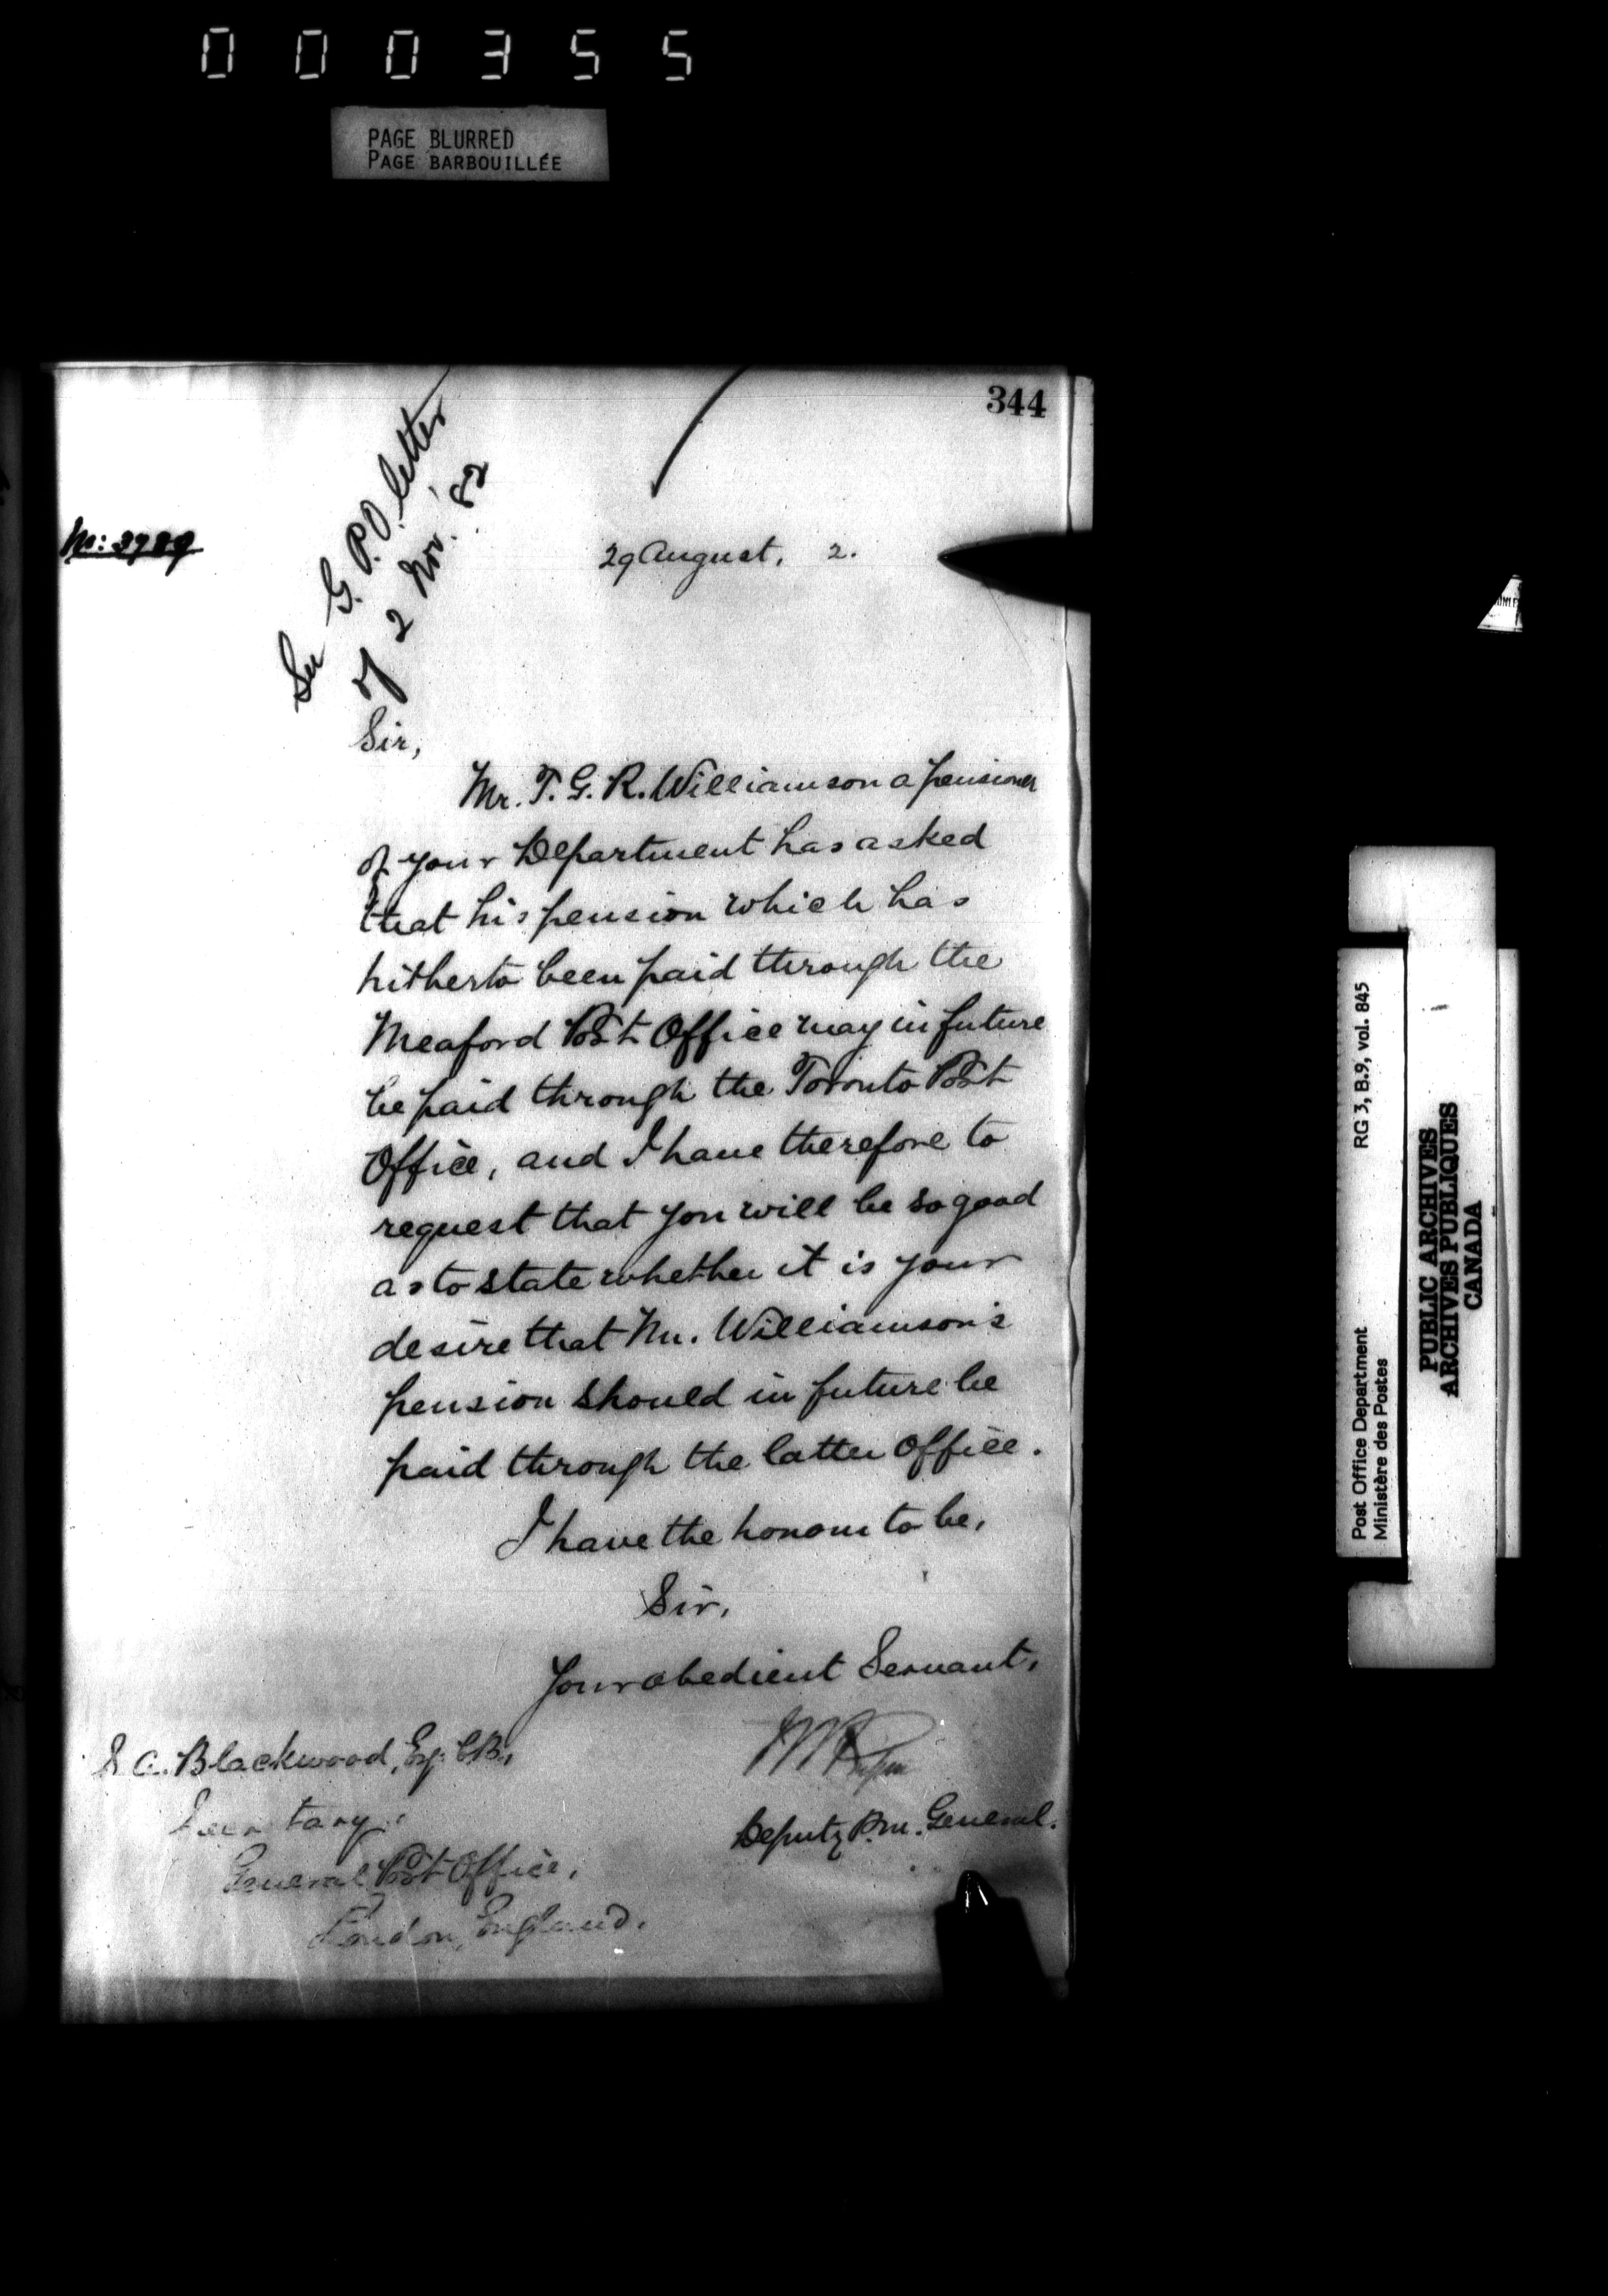 000355
PAGE BLURRED
PAGE BARBOUILLÉE
344
See G.P.O. letter
of 2 Nov. '82
No: 3789
29 August, 2.
Sir,
Mr. T. G. R. Williamson a pensioner
of your Department has asked
that his pension which has
hitherto been paid through the
Meaford Post Office may in future
be paid through the Toronto Post
Office, and I have therefore to
request that you will be so good
as to state whether it is your
desire that Mr. Williamson's
pension should in future be
paid through the latter Office.
I have the honour to be,
Sir,
Your obedient Servant,
Deputy P.M. General.
S. A. Blackwood, Esq. C.B.,
Secretary,
General Post Office,
London, England.
RG 3, B.9, vol. 845
Post Office Department
Ministère des Postes
PUBLIC ARCHIVES
ARCHIVES PUBLIQUES
CANADA